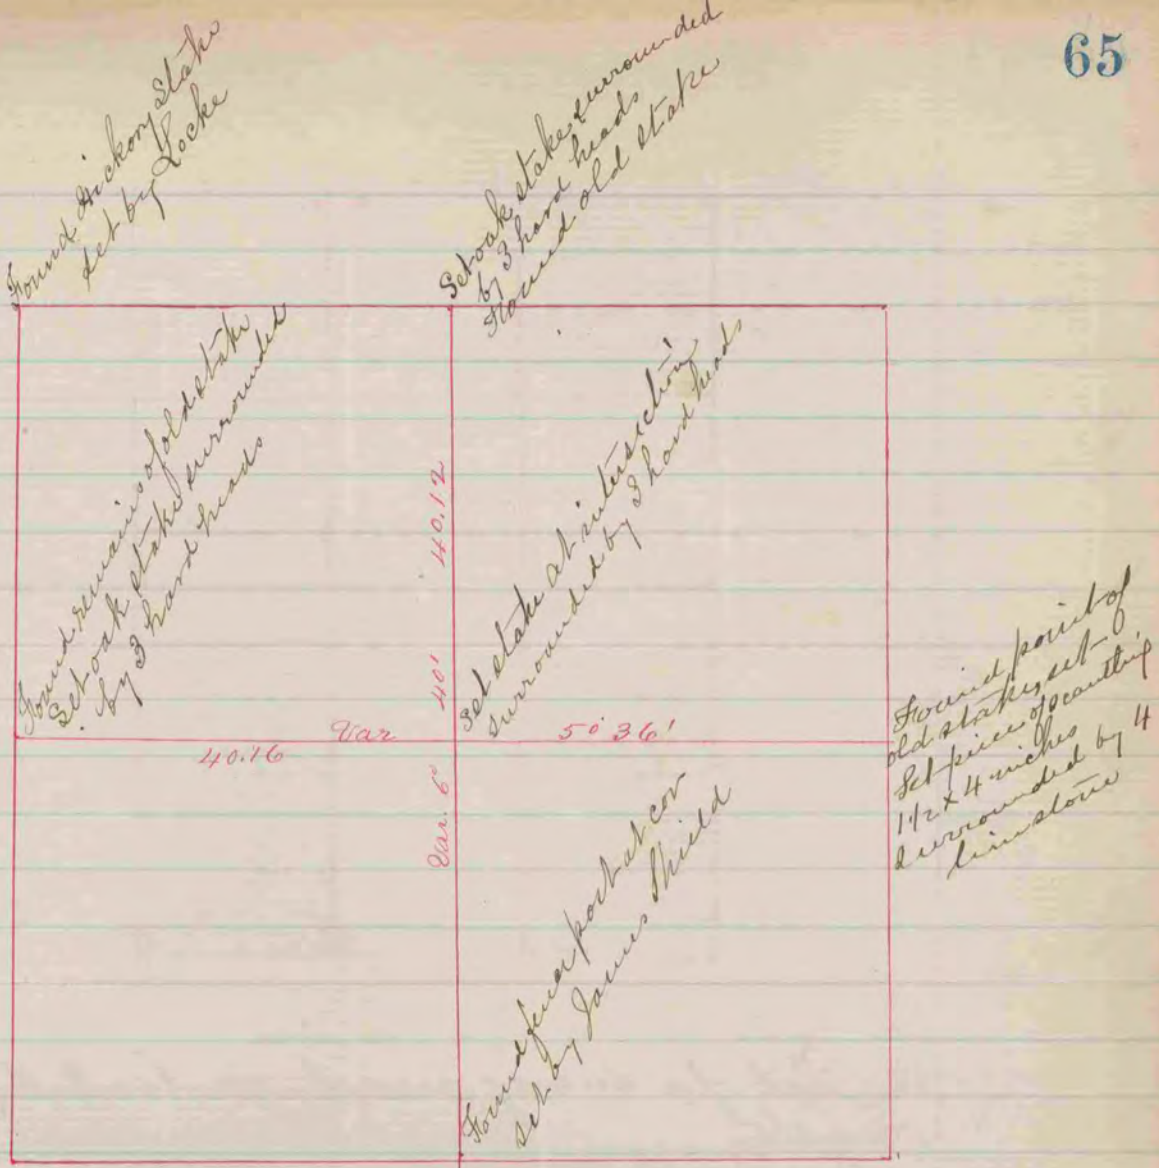 65
Found Hickory Stake
set by Locke
Set oak stake surrounded
by 3 hard heads
Found old stake
Found remains of old stake
Set oak stake surrounded
by 3 hard heads
Set stake at intersection
surrounded by 3 hard heads
Var. 6° 40' 40.12
40.16 Var 5° 36'
Found point of
old stake, set
Set piece of scantling
1 1/2 x 4 inches
surrounded by 4
limestone
Found fence post at cor
set by James Shield